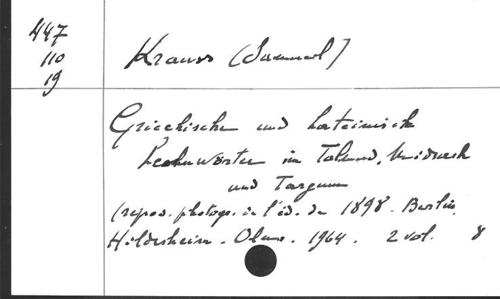 447
110
19
Krauss (Samuel)
Griechische und Lateinische
Lehnwörter im Talmud, Midrasch
und Targum
(repro. photogr. de l'éd. de 1898. Berlin.
Hildesheim. Olms. 1964. 2 vol. 8